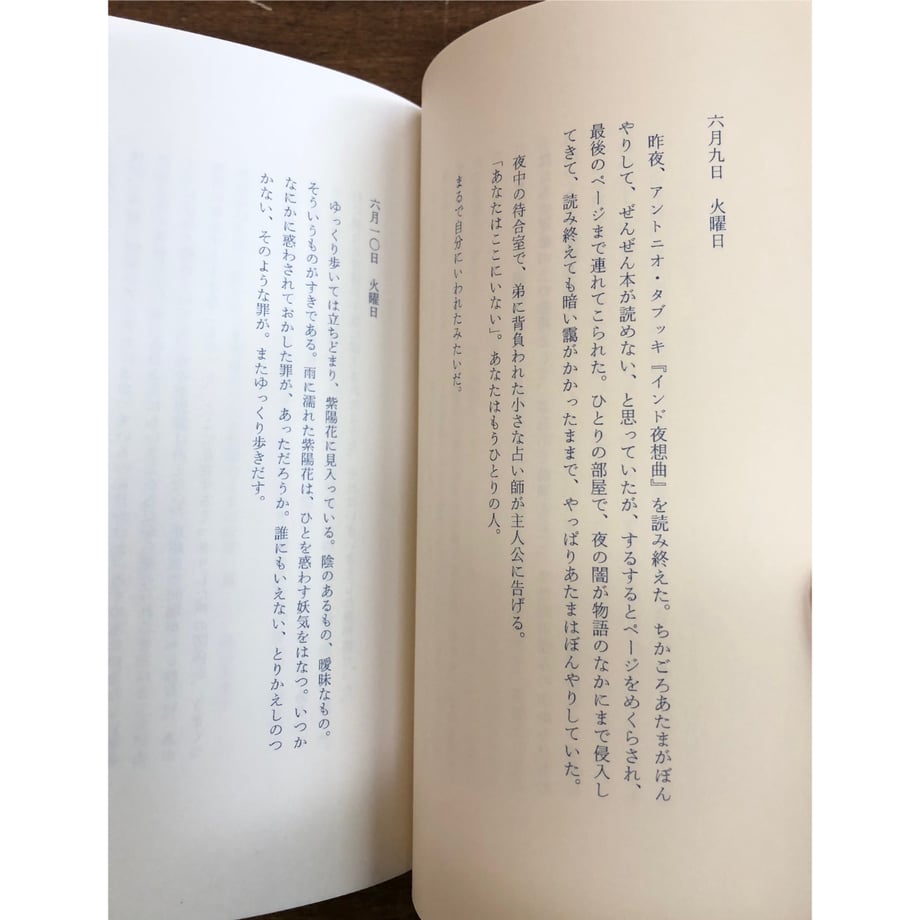 六月九日 火曜日
昨夜、アントニオ・タブッキ『インド夜想曲』を読み終えた。ちかごろあたまがぼん
やりして、ぜんぜん本が読めない、と思っていたが、するするとページをめくらされ、
最後のページまで連れてこられた。ひとりの部屋で、夜の闇が物語のなかにまで侵入し
てきて、読み終えても暗い靄がかかったままで、やっぱりあたまはぼんやりしていた。
夜中の待合室で、弟に背負われた小さな占い師が主人公に告げる。
「あなたはここにいない」。あなたはもうひとりの人。
まるで自分にいわれたみたいだ。
六月一〇日 火曜日
ゆっくり歩いては立ちどまり、紫陽花に見入っている。陰のあるもの、曖昧なもの。
そういうものがすきである。雨に濡れた紫陽花は、ひとを惑わす妖気をはなつ。いつか
なにかに惑わされておかした罪が、あっただろうか。誰にもいえない、とりかえしのつ
かない、そのような罪が。またゆっくり歩きだす。